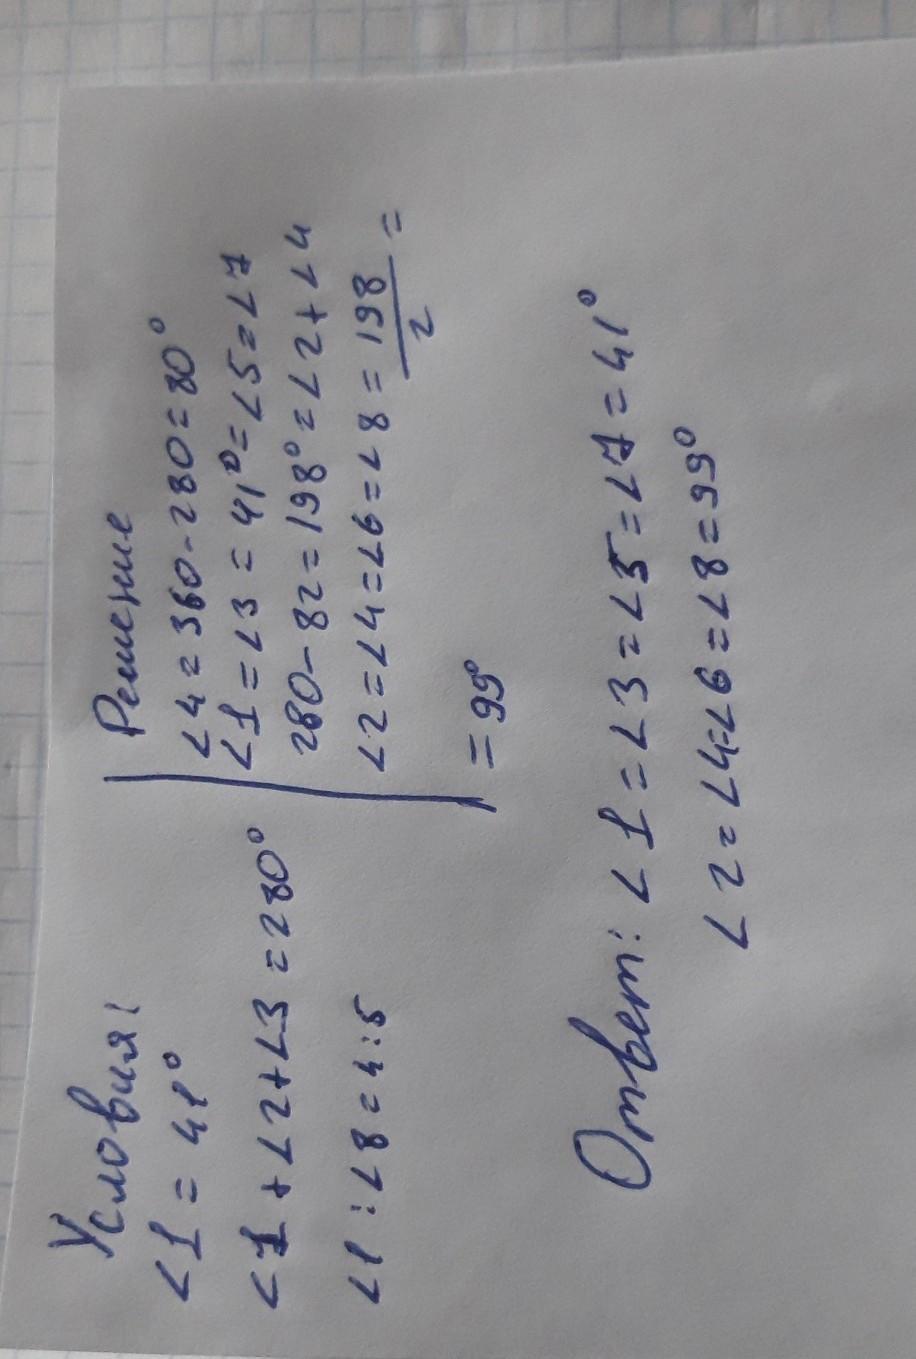 Условия!
∠1 = 41°
∠1 + ∠2 + ∠3 = 280°
∠1 : ∠8 = 4:5
Решение
∠4 = 360 - 280 = 80°
∠1 = ∠3 = 41° = ∠5 = ∠7
280 - 82 = 198° = ∠2 + ∠4
∠2 = ∠4 = ∠6 = ∠8 = 198/2 =
= 99°
Ответ: ∠1 = ∠3 = ∠5 = ∠7 = 41°
∠2 = ∠4 = ∠6 = ∠8 = 99°